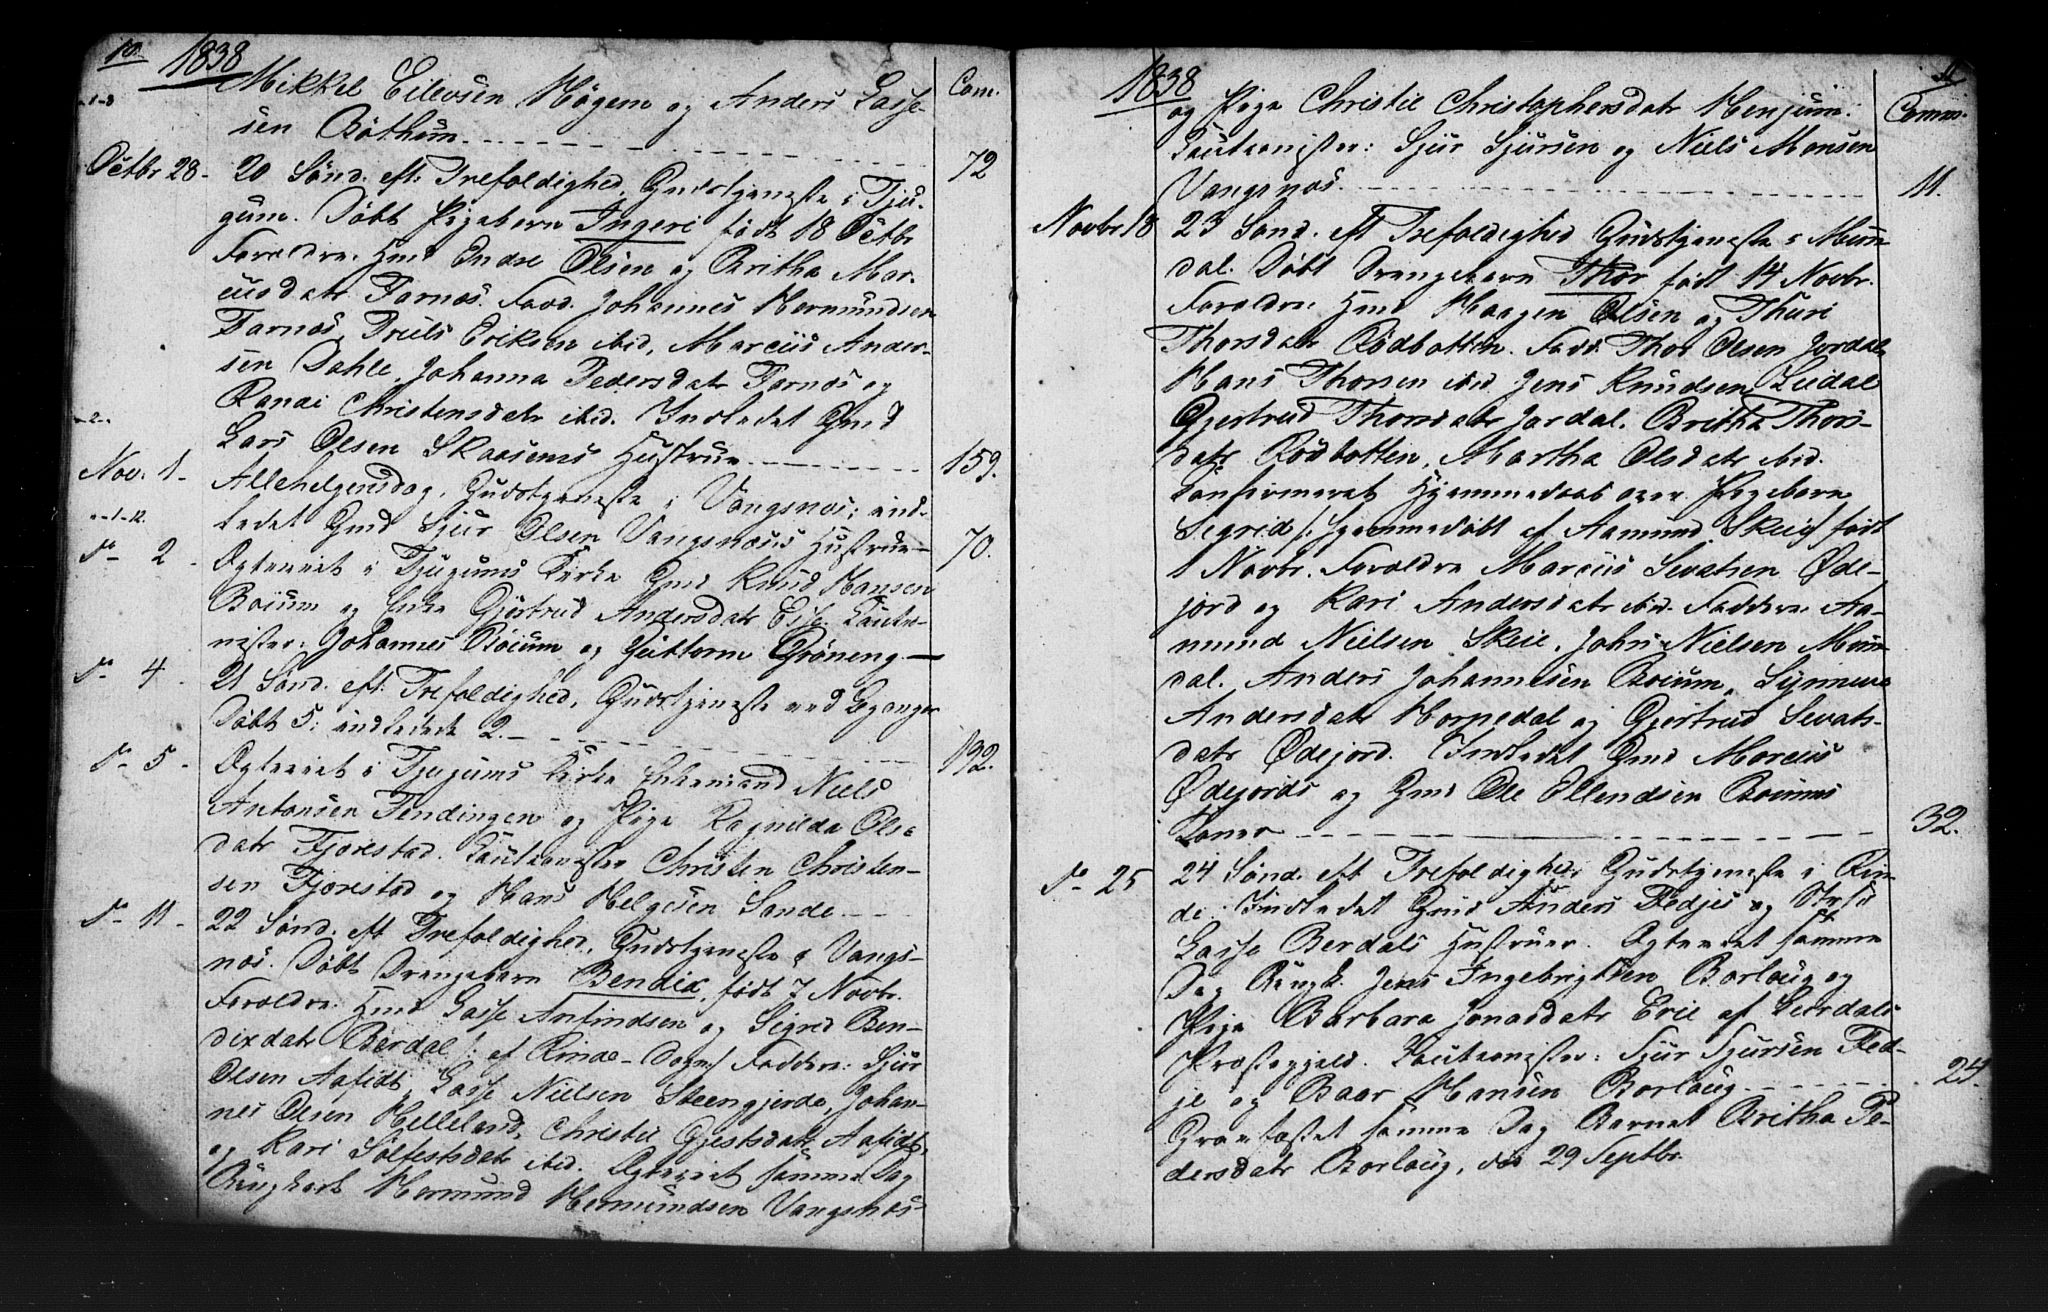 10. 1838
Mikkel Eilevsen Högem og Anders Lasse- Com.
sen Böthum
Octbr 28 - 20 Sönd. eft: Trefoldighed, Gudstjeneste i Tju- 72
gum. Döbt Pigebarn Ingeri født 18 Octbr
Forældre: Gmd Endre Olsen og Britha Mar-
cusdatr Farnæs. Fadd. Johannes Hermundsen
Farnæs, Truls Eriksen ibid, Marcus Ander-
sen Dahle, Johanna Pedersdatr Farnæs og
Randi Christensdatr ibid. Indledet Gmd
Lars Olsen Skaasems Hustrue
Nov. 1 - Allehelgensdag, Gudstjeneste i Vangsnæs; ind- 159.
ledet Gmd Sjur Olsen Vangsnæses Hustrue
do 2 - Egteviet i Tjugums Kirke Gmd Knud Hansen 70.
Böium og Enke Gjertrud Andersdatr Esse. Cauto-
nister: Johannes Böium og Guttorm Gröneng
do 4 - 21 Sönd. eft: Trefoldighed, Gudstjeneste ved Leganger
Döbt 5; indledet 2.
do 5 - Egteviet i Tjugums Kirke Enkemand Niels 192.
Antonsen Tendingen og Pige Ragnilda Ols-
datr Fjørestad. Cautionister Christen Christen-
sen Fjørestad og Hans Helgesen Sande
do 11 - 22 Sönd. eft Trefoldighed, Gudstjeneste i Vangs-
næs. Döbt Drengebarn Bendix, født 7 Novbr.
Forældre: Gmd Lasse Anfindsen og Sigrid Ben-
dixdatr Berdal /: af Rinde-Sogn :/ Faddere: Sjur
Olsen Aafedt, Lasse Nielsen Steengjerde, Johan-
nes Olsen Helleland, Christie Gjestsdatr Aafedt,
og Kari Solfestsdatr ibid. Egteviet samme Dag
Ungkarl Hermund Hermundsen Vangsnæs
1838 11
og Pige Christie Christophersdatr Henjum. Comm.
Cautionister: Sjur Sjursen og Niels Monsen
Vangsnæs. 11.
Novbr. 18 23 Sönd. eft Trefoldighed Gudstjeneste i Mun-
dal. Döbt Drengebarn Thor født 14 Novbr.
Forældre: Hmd Haagen Olsen og Thuri
Thorsdatr Rödbotten. Fadd: Thor Olsen Jordal,
Hans Thorsen ibid Jens Knudsen Lidal
Gjertrud Thorsdatr Jordal, Britha Thors-
datr Rödbotten, Martha Olsdatr ibid.
Confirmeret Hjemmedaab over Pigebarn
Sigrid /: hjemmedöbt af Aamund Skeie :/ født
1 Novbr. Forældre Marcus Sevatsen Øde-
jord og Kari Andersdatr ibid. Faddere: Aa-
mund Nielsen Skeie, John Nielsen Mun-
dal. Anders Johannesen Böium, Synneve
Andersdatr Horpedal og Gjertrud Sevats-
datr Ødejord. Indledet Gmd Marcus
Ødejords og Gmd Ole Ellendsen Böiums
Koner 32.
do 25 24 Sönd. eft Trefoldighed Gudstjeneste i Rin-
de. Indledet Gmd Anders Fedjes og
Lasse Berdals Hustruer. Egteviet samme
Dag Ungk. Jens Ingebrigtsen Borlaug og
Pige Barbara Jonasdatr Erie af Leirdals
Præstegjeld. Cautionister: Sjur Sjursen Fed-
je og Baar Hansen Borlaug. 24
Graafæstet samme Dag Barnet Britha Pe-
dersdatr Borlaug, död 29 Septbr.